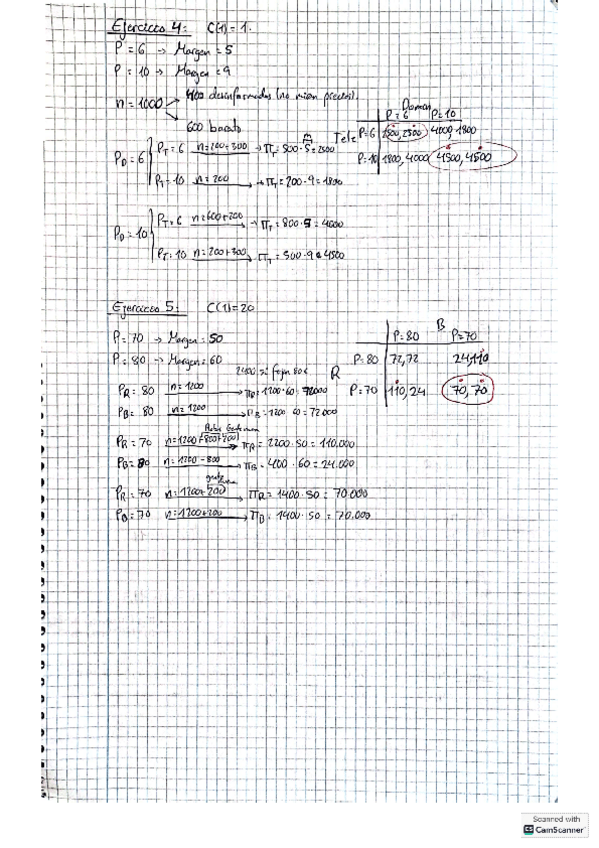 Ejercicio 4: C(1)=1.
P=6 → Margen=5
P=10 → Margen=9
n=1000 → 400 desinformados (no miran precios).
→ 600 barato
P_D=6 { P_T=6 n=200+300 → π_T=500·5=2500
P_T=10 n=200 → π_T=200·9=1800
P_D=10 { P_T=6 n=600+200 → π_T=800·5=4000
P_T=10 n=200+300 → π_T=500·9=4500
P=6 P=10
Tele P=6 2500,2500 4000,1800
P=10 1800,4000 4500,4500
Ejercicio 5: C(1)=20
P=70 → Margen=50
P=80 → Margen=60
P_R=80 n=1200 → π_R=1200·60=72000
P_B=80 n=1200 → π_B=1200·60=72000
P_R=70 n=1200+800+200 → π_R=2200·50=110.000
P_B=80 n=1200-800 → π_B=400·60=24.000
P_R=70 n=1200+200 → π_R=1400·50=70.000
P_B=70 n=1200+200 → π_B=1400·50=70.000
B
P=80 P=70
R P=80 72,72 24,110
P=70 110,24 70,70
Scanned with
CamScanner